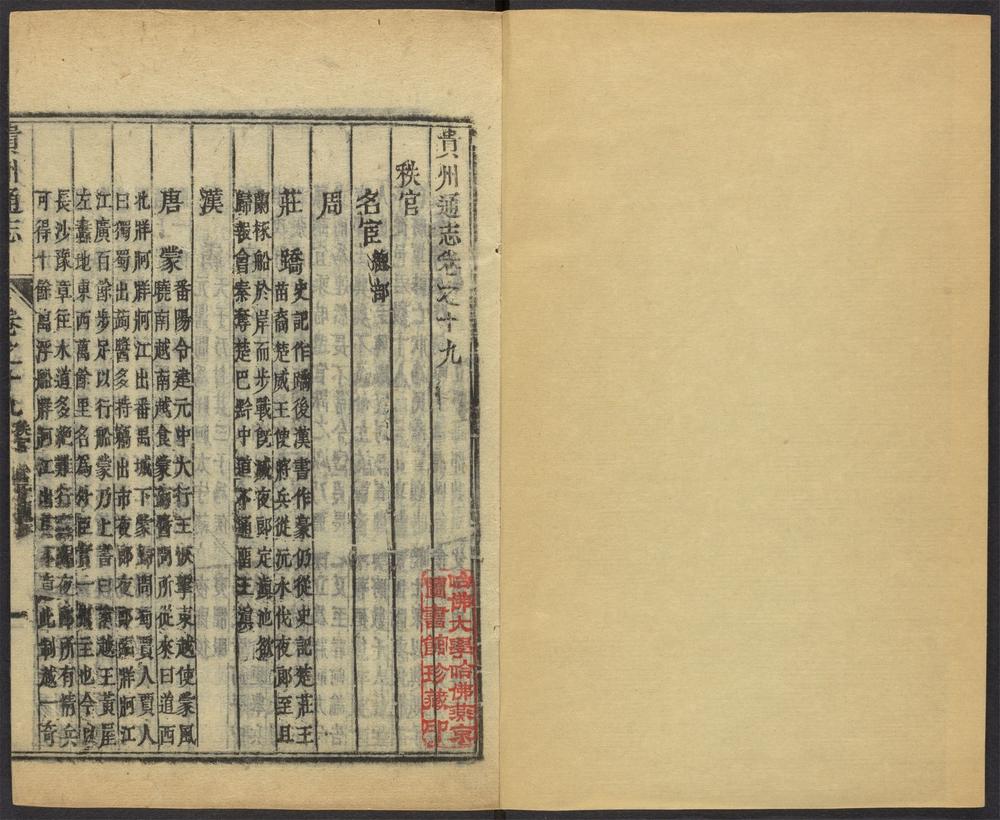 貴州通志卷之十九
秩官
名宦總部
周
莊蹻史記作蹻後漢書作豪仍從史記楚莊王
苗裔楚威王使將兵從沅水伐夜郎至且
蘭椓船於岸而步戰既滅夜郎定滇池欲
歸報會秦奪楚巴黔中道不通遂王滇
漢
唐蒙番陽令建元中大行王恢擊東越使蒙風
曉南越南越食蒙蒟醬問所從來曰道西
北牂牁牂牁江出番禺城下蒙歸問蜀賈人賈人
曰獨蜀出蒟醬多持竊出市夜郎夜郎臨牂牁江
江廣百餘步足以行船蒙乃上書曰南越王黃屋
左纛地東西萬餘里名為外臣實一州主也今以
長沙豫章往水道多絕難行竊聞夜郎所有精兵
可得十餘萬浮船牂牁江出其不意此制越一奇
貴州通志
卷之十九
秩官
一
哈佛大學哈佛燕京
圖書館珍藏印